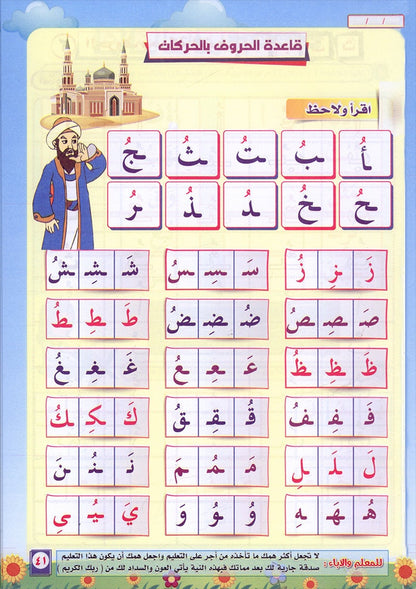 / /
قاعدة الحروف بالحركات
اقرأ ولاحظ
أُ بُ تُ ثُ جُ
حُ خُ دُ ذُ رُ
زَ زِ زُ سَ سِ سُ شَ شِ شُ
صَ صِ صُ ضُ ضِ ضُ طَ طِ طُ
ظَ ظِ ظُ عَ عِ عُ غَ غِ غُ
فَ فِ فُ قُ قِ قُ كَ كِ كُ
لَ لَ لِ مَ مُ مَ نَ نُ نَ
هُ هَ هِ وُ وُ وَ يَ يُ يِ
للمعلم والآباء: لا تجعل أكثر همك ما تأخذه من أجر على التعليم واجعل همك أن يكون هذا التعليم
صدقة جارية لك بعد مماتك فبهذه النية يأتي العون والسداد لك من ( ربك الكريم )
٤١